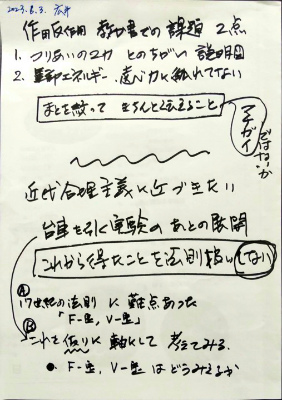 2023.8.3. 広井
作用反作用 教科書での課題 2点
1. つりあいの2力 とのちがい 説明
2. 運動エネルギー・遠心力に触れてない
まとを絞って きちんと伝えること
マチガイ
ではないか
近代合理主義に近づきたい
台車を引く実験の あとの展開
これから得たことを法則扱いしない
Ⓐ
17世紀の法則 に 難点あった
「F-型, V-型」
Ⓑ
これを仮りに 軸にして 考えてみる.
● F-型, V-型 はどうみえるか